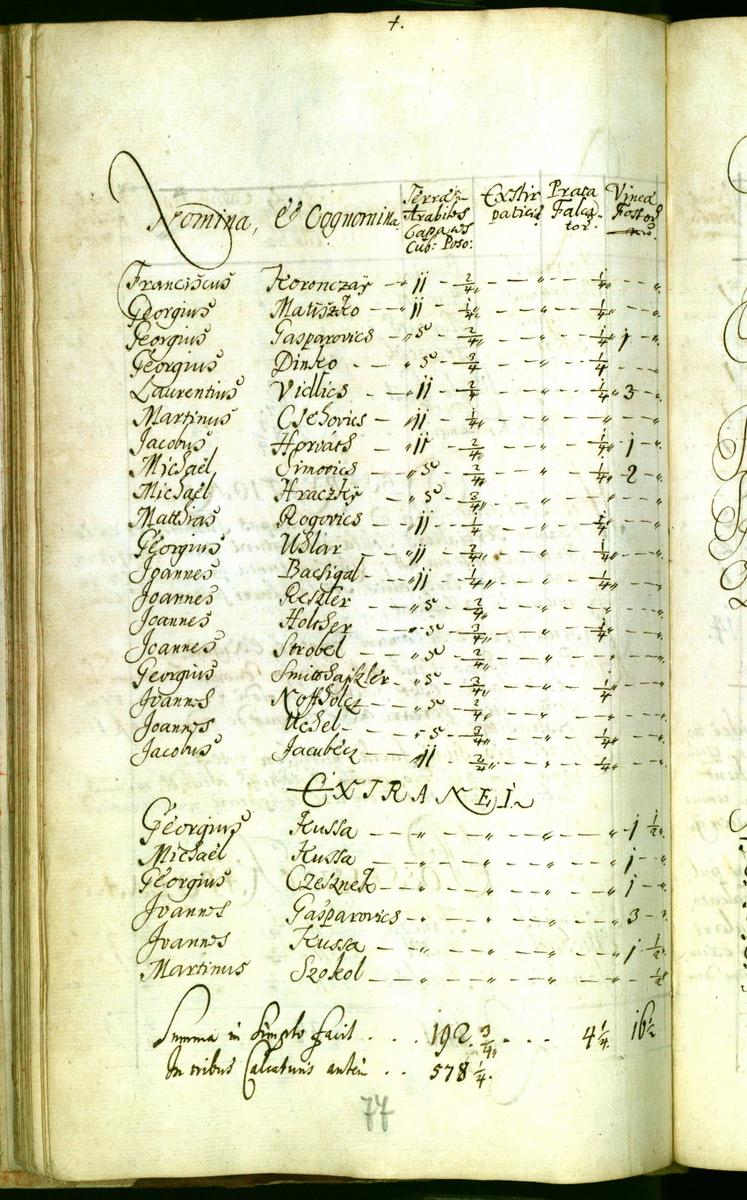 4.
Nomina, & Cognomina. Terrae Arabiles Capaces Cub: Poso: Exstirpaticiae Prata Falcator. Vinea Fossor
Franciscus Koronczaÿ — „ 11 — 2/4 „ — — „ — — 1/4 „ — — „
Georgius Matuszko — „ 11 — 1/4 „ — — „ — — 1/4 „ — — „
Georgius Gasparovics — „ 5 — 2/4 „ — — „ — — 1/4 „ 1 — „
Georgius Dinko — — „ 5 — 3/4 — — „ — — 1/4 — — „
Laurentius Vidlics — „ 11 — 2/4 — — „ — — 1/4 „ 3 — „
Martinus Csehovics — „ 11 — 1/4 „ — — „ — — „ — — „
Jacobus Horváth — „ 11 — 2/4 „ — — „ — — 1/4 „ 1 — „
Michaël Simovics — „ 5 — 2/4 „ — — „ — — 1/4 „ 2 — „
Michaël Hraczkÿ — „ 5 — 3/4 — — „ — — „ — — „
Matthias Rogovics — „ 11 — 1/4 — — „ — — 1/4 „ — — „
Georgius Uhlar — — „ 11 — 2/4 „ — — „ — — 1/4 „ — — „
Joannes Bacsigal — „ 11 — 1/4 „ — — „ — — 1/4 „ — — „
Joannes Reszler — — „ 5 — 2/4 — — „ — — „ — — „
Joannes Holcher — — „ 5 — 3/4 „ — — „ — — 1/4 „ — — „
Joannes Strobel — — „ 5 — 2/4 „ — — „ — — „ — — „
Georgius Smitthajszler — „ 5 — 3/4 „ — — „ — — 1/4 — — „
Joannes Noffholcz — „ 5 — 2/4 „ — — „ — — „ — — „
Joannes Uchel — — „ 5 — 3/4 „ — — „ — — 1/4 „ — — „
Jacobus Jacubecz — „ 11 — 2/4 „ — — „ — — 1/4 „ — — „
EXTRANEI
Georgius Kussa — — „ — — „ — — „ — — „ 1 1/2 „
Michaël Kussa — — „ — — „ — — „ — — „ 1 — „
Georgius Czesznek — — „ — — „ — — „ — — „ 1 — „
Joannes Gasparovics — „ — — „ — — „ — — „ 3 — „
Joannes Kussa — — „ — — „ — — „ — — „ 1 1/2 „
Martinus Szokol — — „ — — „ — — „ — — „ — 1/2 „
Summa in Simplo facit . . . 192. 3/4 „ . . . 4 1/4 16 1/2
In tribus Calcaturis . . 578 1/4.
77